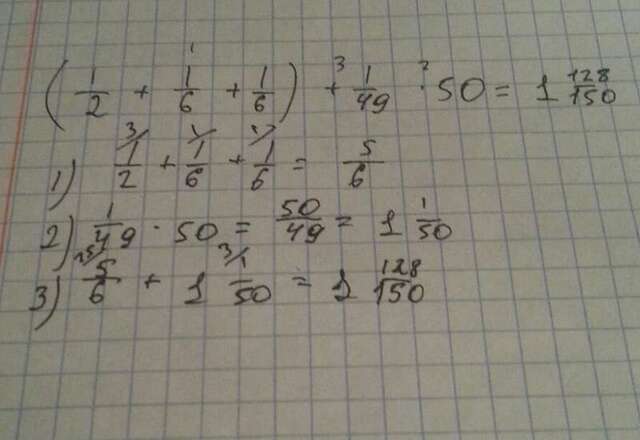 (1/2 + 1/6 + 1/6) + 1/49 · 50 = 1 128/150
1) 1/2 + 1/6 + 1/6 = 5/6
2) 1/49 · 50 = 50/49 = 1 1/50
3) 5/6 + 1 1/50 = 1 128/150